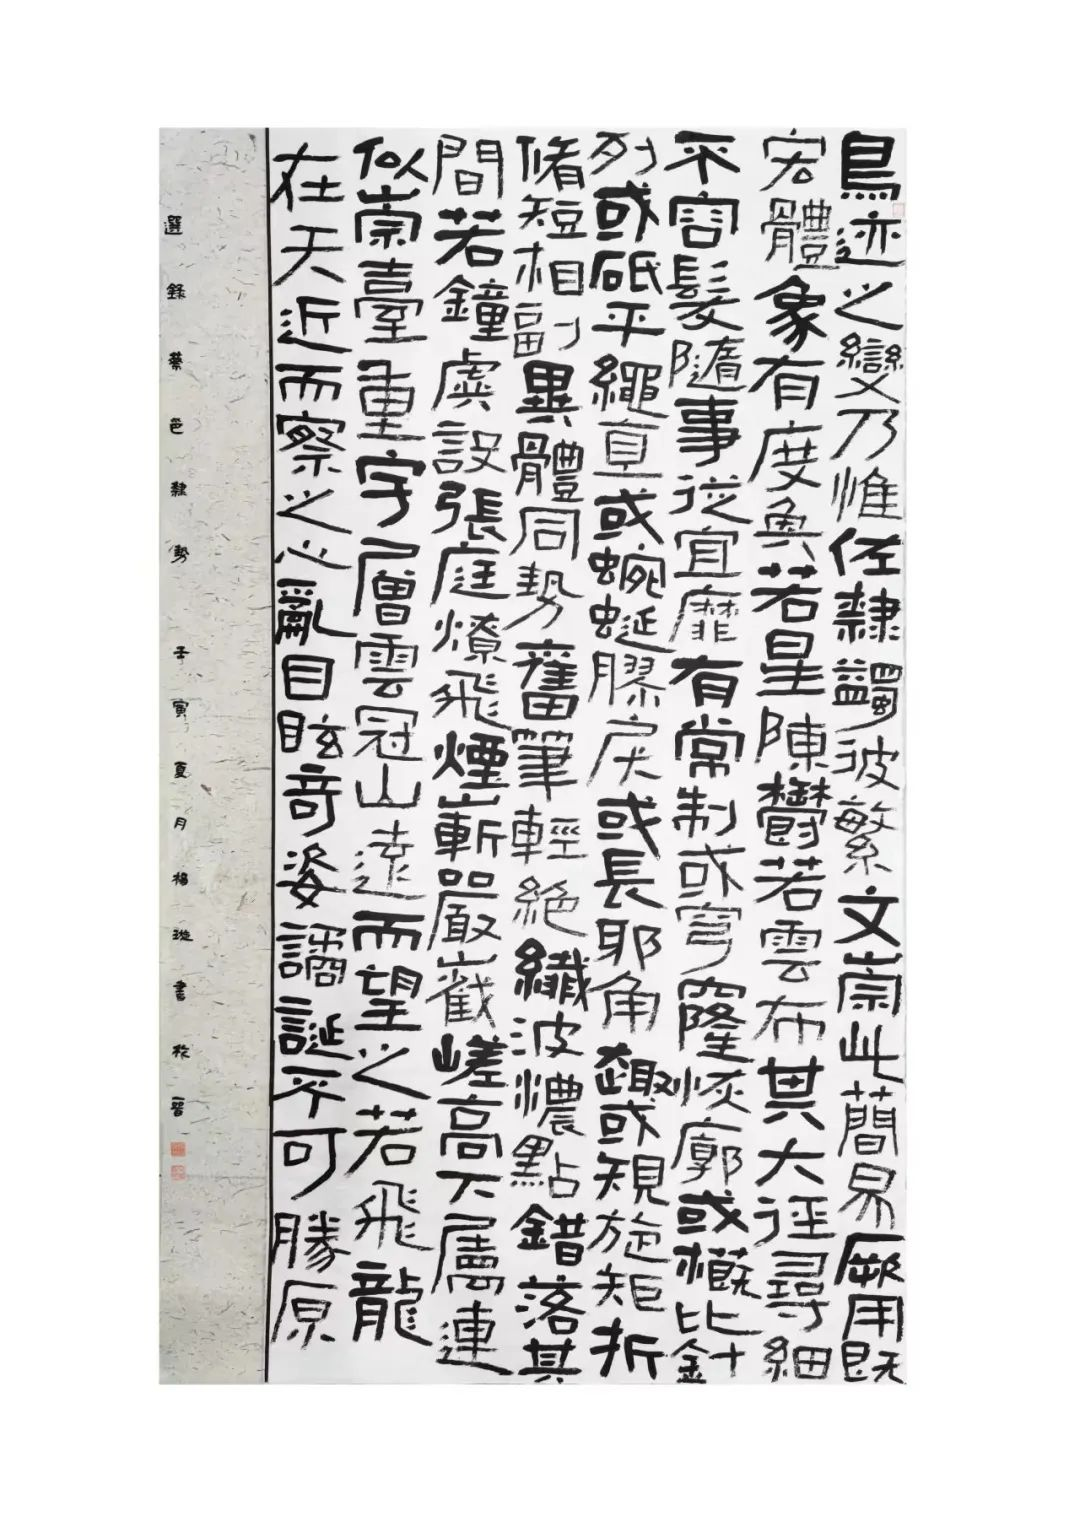 鳥迹之變乃惟佐隸蠲彼繁文崇此蕳易厥用既
宏體象有度奐若星陳欝若雲布其大徑尋細
不容髮隨事從宜靡有常制或穹窿恢廓或櫛比針
列或砥平繩直或蜿蜒膠戾或長耶角趣或規旋矩折
脩短相副異體同勢奮筆輕絶纖波濃點錯落其
間若鐘虡設張庭燎飛煙嶄嵒嚴嶻嵯高下屬連
似崇臺重宇層雲冠山遠而望之若飛龍
在天近而察之心亂目眩奇姿譎誕不可勝原
選錄蔡邕隸勢壬寅夏月楊璇書於晉